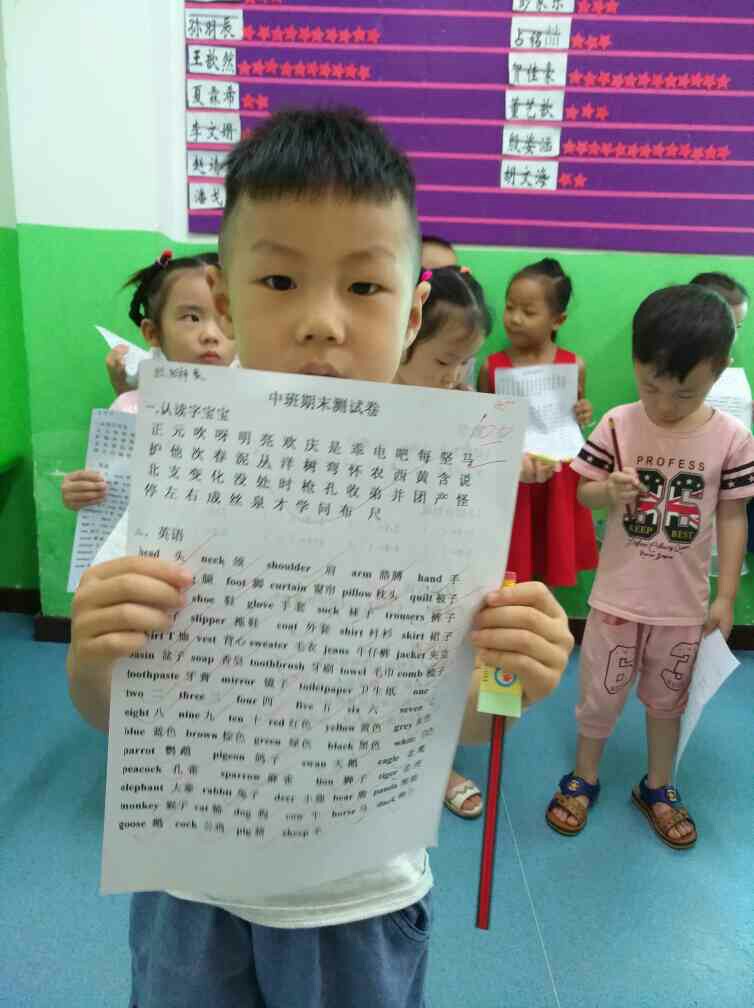 孙羽辰
王歆然
夏霖希
李文姗
占铭
贺佳豪
董艺歆
殷姿涵
胡文海
中班期末测试卷
100
一.认读字宝宝
正 元 吹 呀 明 亮 欢 庆 是 乖 电 吧 每 坚
护 他 次 春 泥 丛 洋 树 弯 怀 农 西 黄 含 说
北 支 变 化 没 处 时 枪 孔 收 弟 并 团 产 怪
停 左 右 成 丝 泉 才 学 问 布 尺
二、英语
head 头 neck 颈 shoulder 肩 arm 胳膊 hand 手
腿 foot 脚 curtain 窗帘 pillow 枕头 quilt 被子
shoe 鞋 glove 手套 sock 袜子 trousers 裤子
slipper 拖鞋 coat 外套 shirt 衬衫 skirt 裙子
T 恤 vest 背心 sweater 毛衣 jeans 牛仔裤 jacket 夹克
basin 盆子 soap 香皂 toothbrush 牙刷 towel 毛巾 comb 梳子
toothpaste 牙膏 mirror 镜子 toiletpaper 卫生纸 one 一
two 二 three 三 four 四 five 五 six 六 seven 七
eight 八 nine 九 ten 十 red 红色 yellow 黄色 grey 灰色
blue 蓝色 brown 棕色 green 绿色 black 黑色 white 白色
parrot 鹦鹉 pigeon 鸽子 swan 天鹅 eagle 老鹰
peacock 孔雀 sparrow 麻雀 lion 狮子 tiger 老虎
elephant 大象 rabbit 兔子 deer 小鹿 bear 熊 panda 熊猫
monkey 猴子 cat 猫 dog 狗 cow 牛 horse 马 duck 鸭子
goose 鹅 cock 公鸡 pig 猪 sheep 羊
PROFESS
KEEP BEST